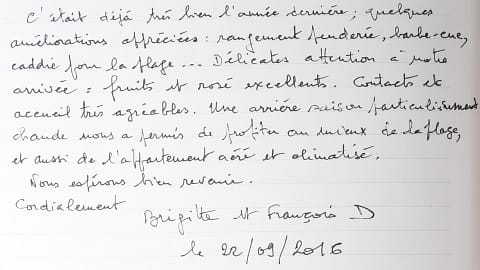 C'était déjà très bien l'année dernière; quelques
améliorations appréciées : rangement penderie, barbe-cue,
caddie pour la plage... Délicates attention à notre
arrivée = fruits et rosé excellents. Contacts et
accueil très agréables. Une arrière saison particulièrement
chaude nous a permis de profiter au mieux de la plage,
et aussi de l'appartement aéré et climatisé.
Nous espérons bien revenir.
Cordialement
Brigitte et François D
le 22/09/2016